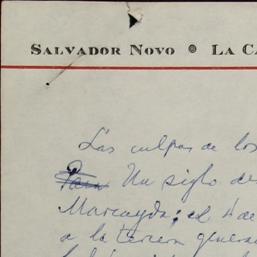 SALVADOR NOVO • LA CA
Las culpas de los
Un siglo de
Marcayda; el 4 de
a la tercera genera